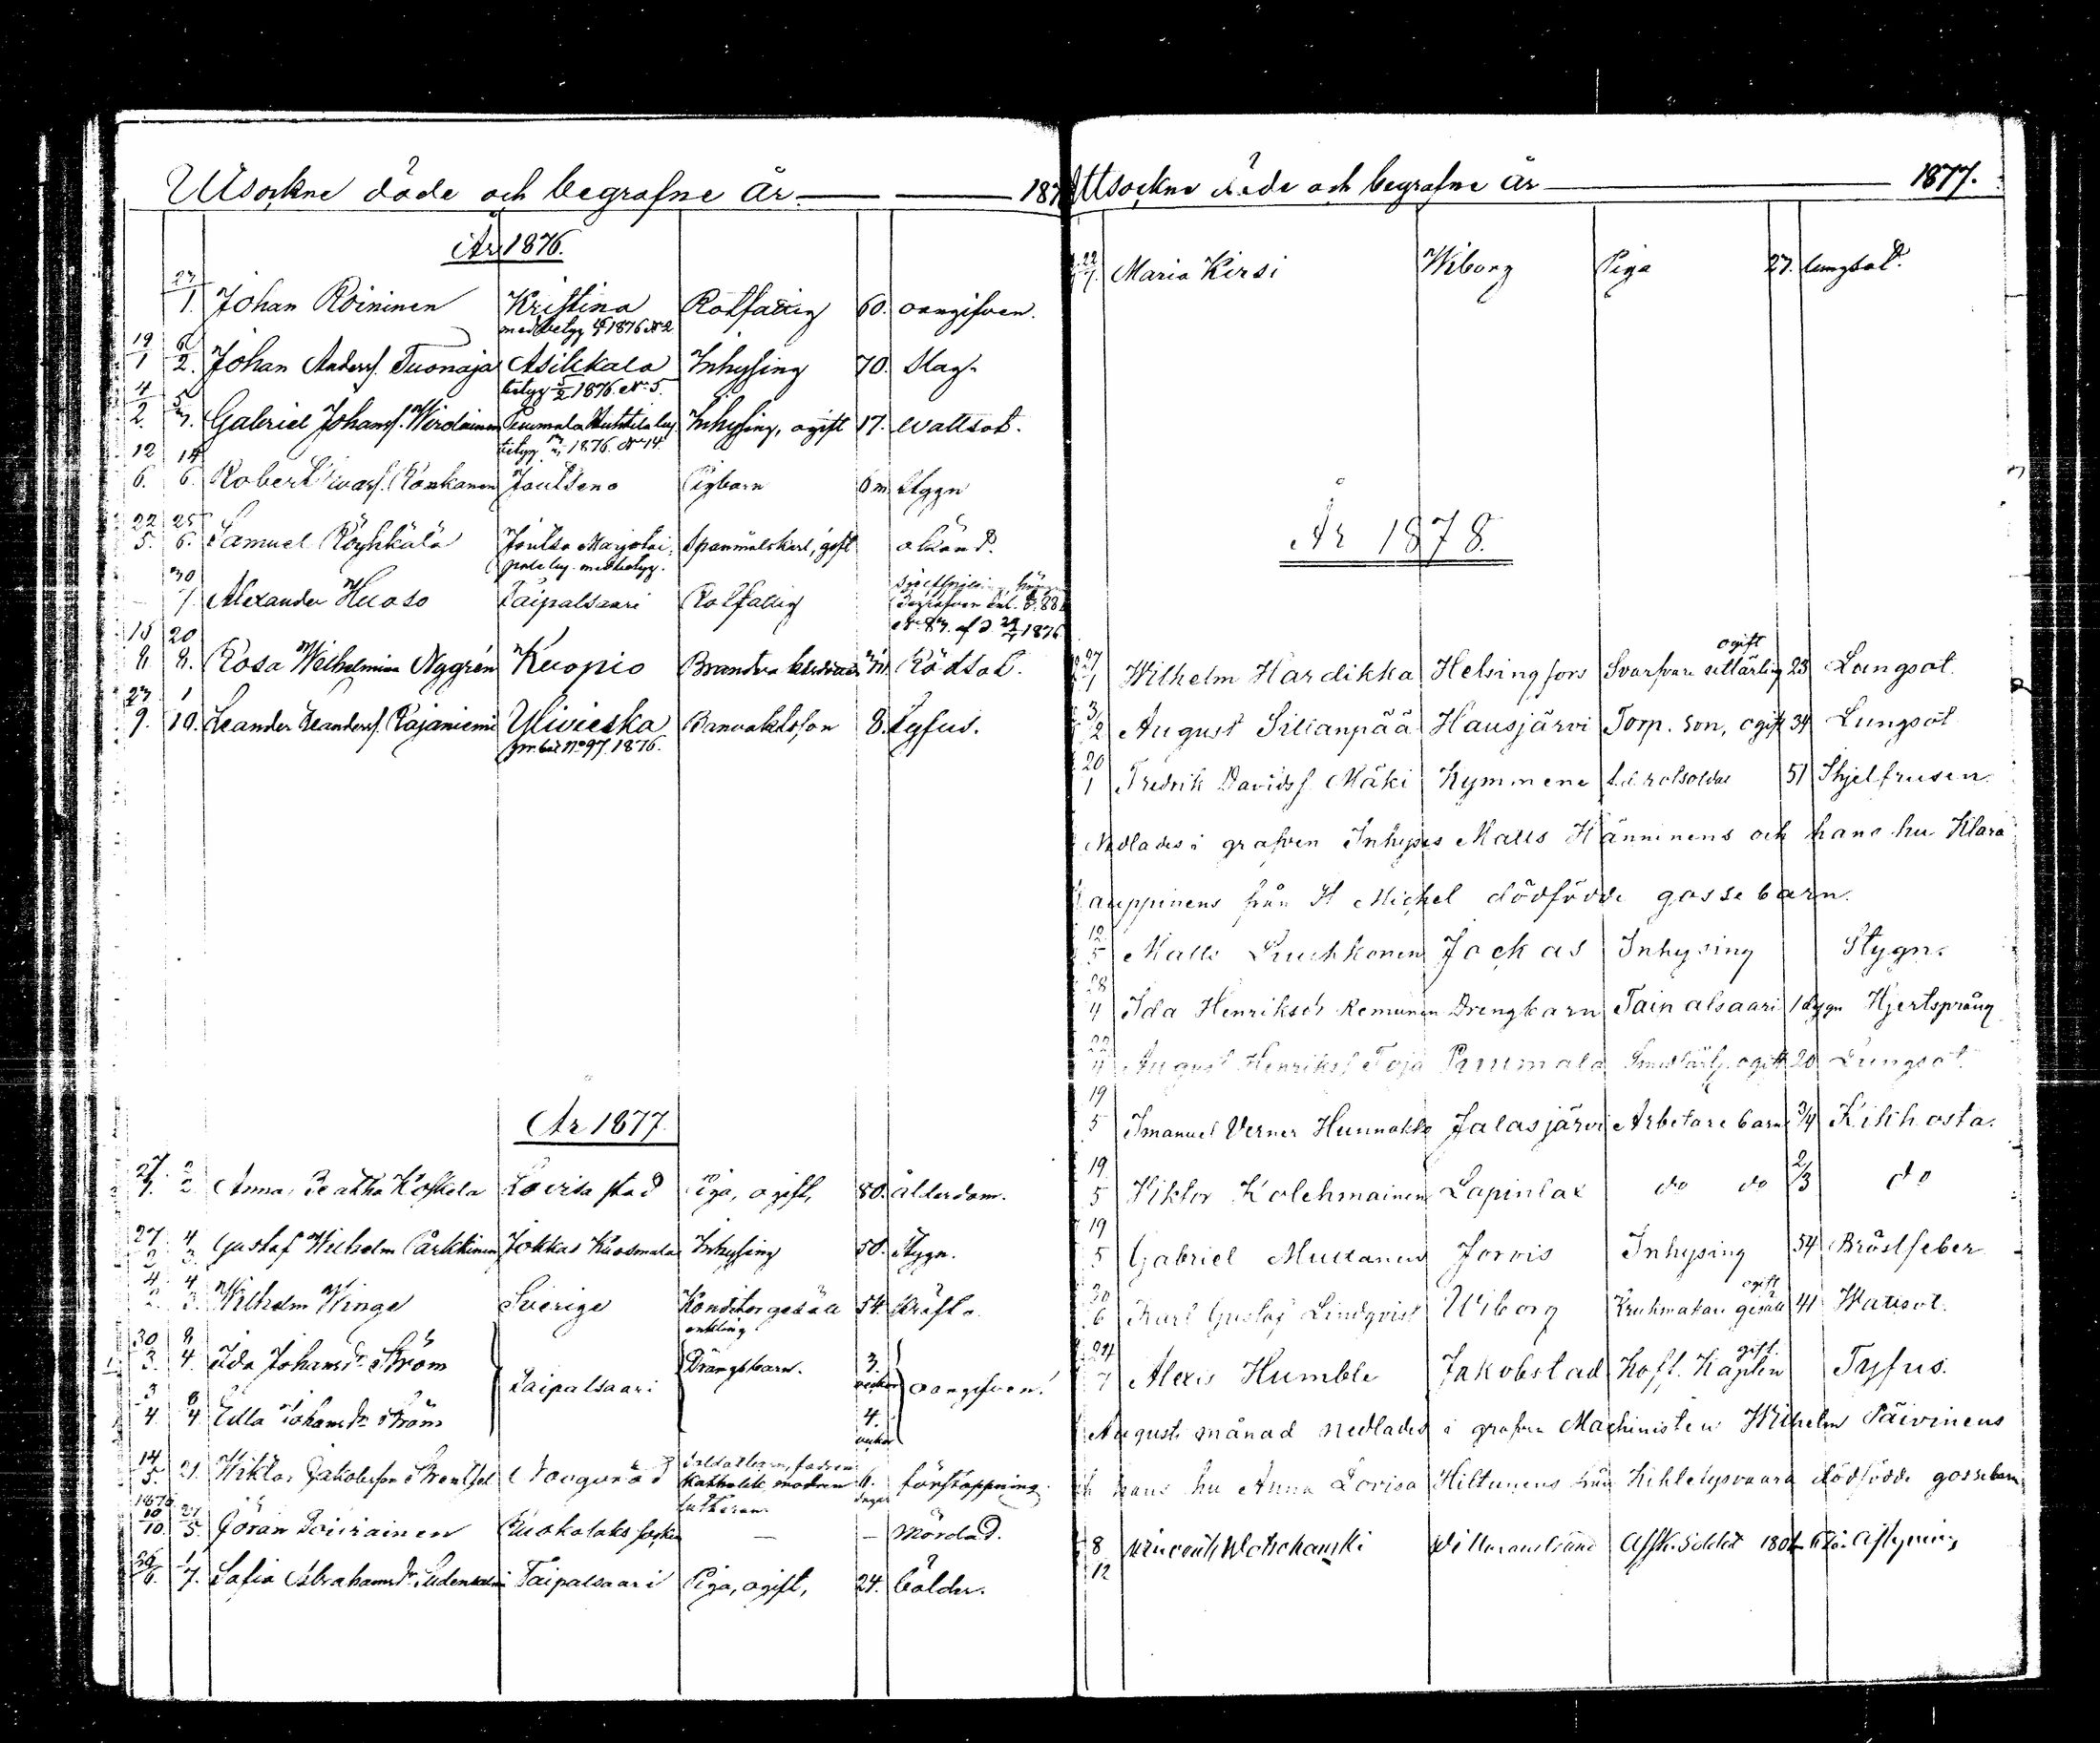 Utsockne döde och begrafne år — — 187
År 1876.
27/1. Johan Roininen Kristina Rotfattig 60. oangifven.
med betyg 1876 No 2
19/1 6/2. Johan Anderss. Tuonaja Asikkala Inhysing 70. Slag
betyg 5/2 1876 No 5.
4/2. 5/3. Gabriel Johanss. Wirolainen Perumala Huhtila by Inhysing, ogift 17. wattsot.
betyg 1876. No 14.
12/6. 14/6. Robert Ivarss. Ronkanen Joutseno Pigbarn 6 m Stygn
22/5. 25/6. Samuel Röyhkälä Joutsa Marjotai- Spanmålskarl, gift okänd.
pale by. med betyg.
30/7 Alexander Huoso Taipalsaari Rotfattig
begrafven enl. 
No 87. af d. 29/7 1876
15/8 20/8. Rosa Wilhelmina Nygrén Kuopio Rödsot.
23/9. 1/10. Leander Leanderss. Rajaniemi Ylivieska Banvaktsson 8. Tyfus.
No 97. 1876.
År 1877.
27/1. 2/2 Anna Beatha Koskela Lovisa stad Piga, ogift, 80. ålderdom.
27/2 4/3. Gustaf Wilhelm Pärkkinen Jokkas Kuosmala Inhysing 50. Stygn.
4/2. 4/3. Wilhelm Winge Sverige Konditorgesäll 54. Kräfta
enkling
30/3. 8/4. Ida Johansdr Ström Taipalsaari Drängebarn. 3. veckor oangifven.
3/4. 8/4. Edla Johansdr Ström 4. veckor
14/5. 21. Wiktor Jakobsson Novgorod Soldatbarn, fadren katholik, modren lutheran. 6. dagar förstoppning.
1876 10/10. 27/5. Göran Toivainen Ruokolaks socken — — Mördad.
30/6. 1/7. Sofia Abrahamsdr. Taipalsaari Piga, ogift, 24. bölder.
Uttsockne döde och begrafne år — 1877.
22/7. Maria Kirsi Wiborg Piga 27. lungsot.
År 1878.
27/1 Wilhelm Hardikka Helsingfors Svarfvare ogift 23 Lungsot.
3/2 August Sillanpää Hausjärvi Torp. son, ogift 34 Lungsot
20/1 Fredrik Davidss. Mäki Kymmene f.d. rotsoldat 51 Ihjelfrusen.
Nedlades i grafven Inhyses Matts Hänninens och hans hu Klara
auppinens från St Michel dödfödde gossebarn.
12/5 Matts Luukkonen Jockas Inhysing Stygn.
28/4 Ida Henriksdr Remunen Drengbarn Taipalsaari 1 dygn Hjertsprång
22/4 August Henrikss Toja Parumala Smedlärl. ogift 20 Lungsot.
19/5 Imanuel Verner Hunnakko Jalasjärvi Arbetare barn 3/4 Kikhosta.
19/5 Viktor Kolehmainen Lapinlax do do 2/3 do
19/5 Gabriel Muttanen Jorois Inhysing 54 Bröstfeber
30/6 Karl Gustaf Lindqvist Wiborg Krukmakare gesäll ogift 41 Wattsot.
24/7 Alexis Humble Jakobstad Koff. Kapten gift. Tyfus.
Augusti månad nedlades i grafven Machinisten Wilhelm Päivinens
och hans hu Anna Lovisa Hiltunens från Kihtelysvaara dödfödde gossebarn.
8/12 Willmanstrand Afsk. Soldat Aftyning